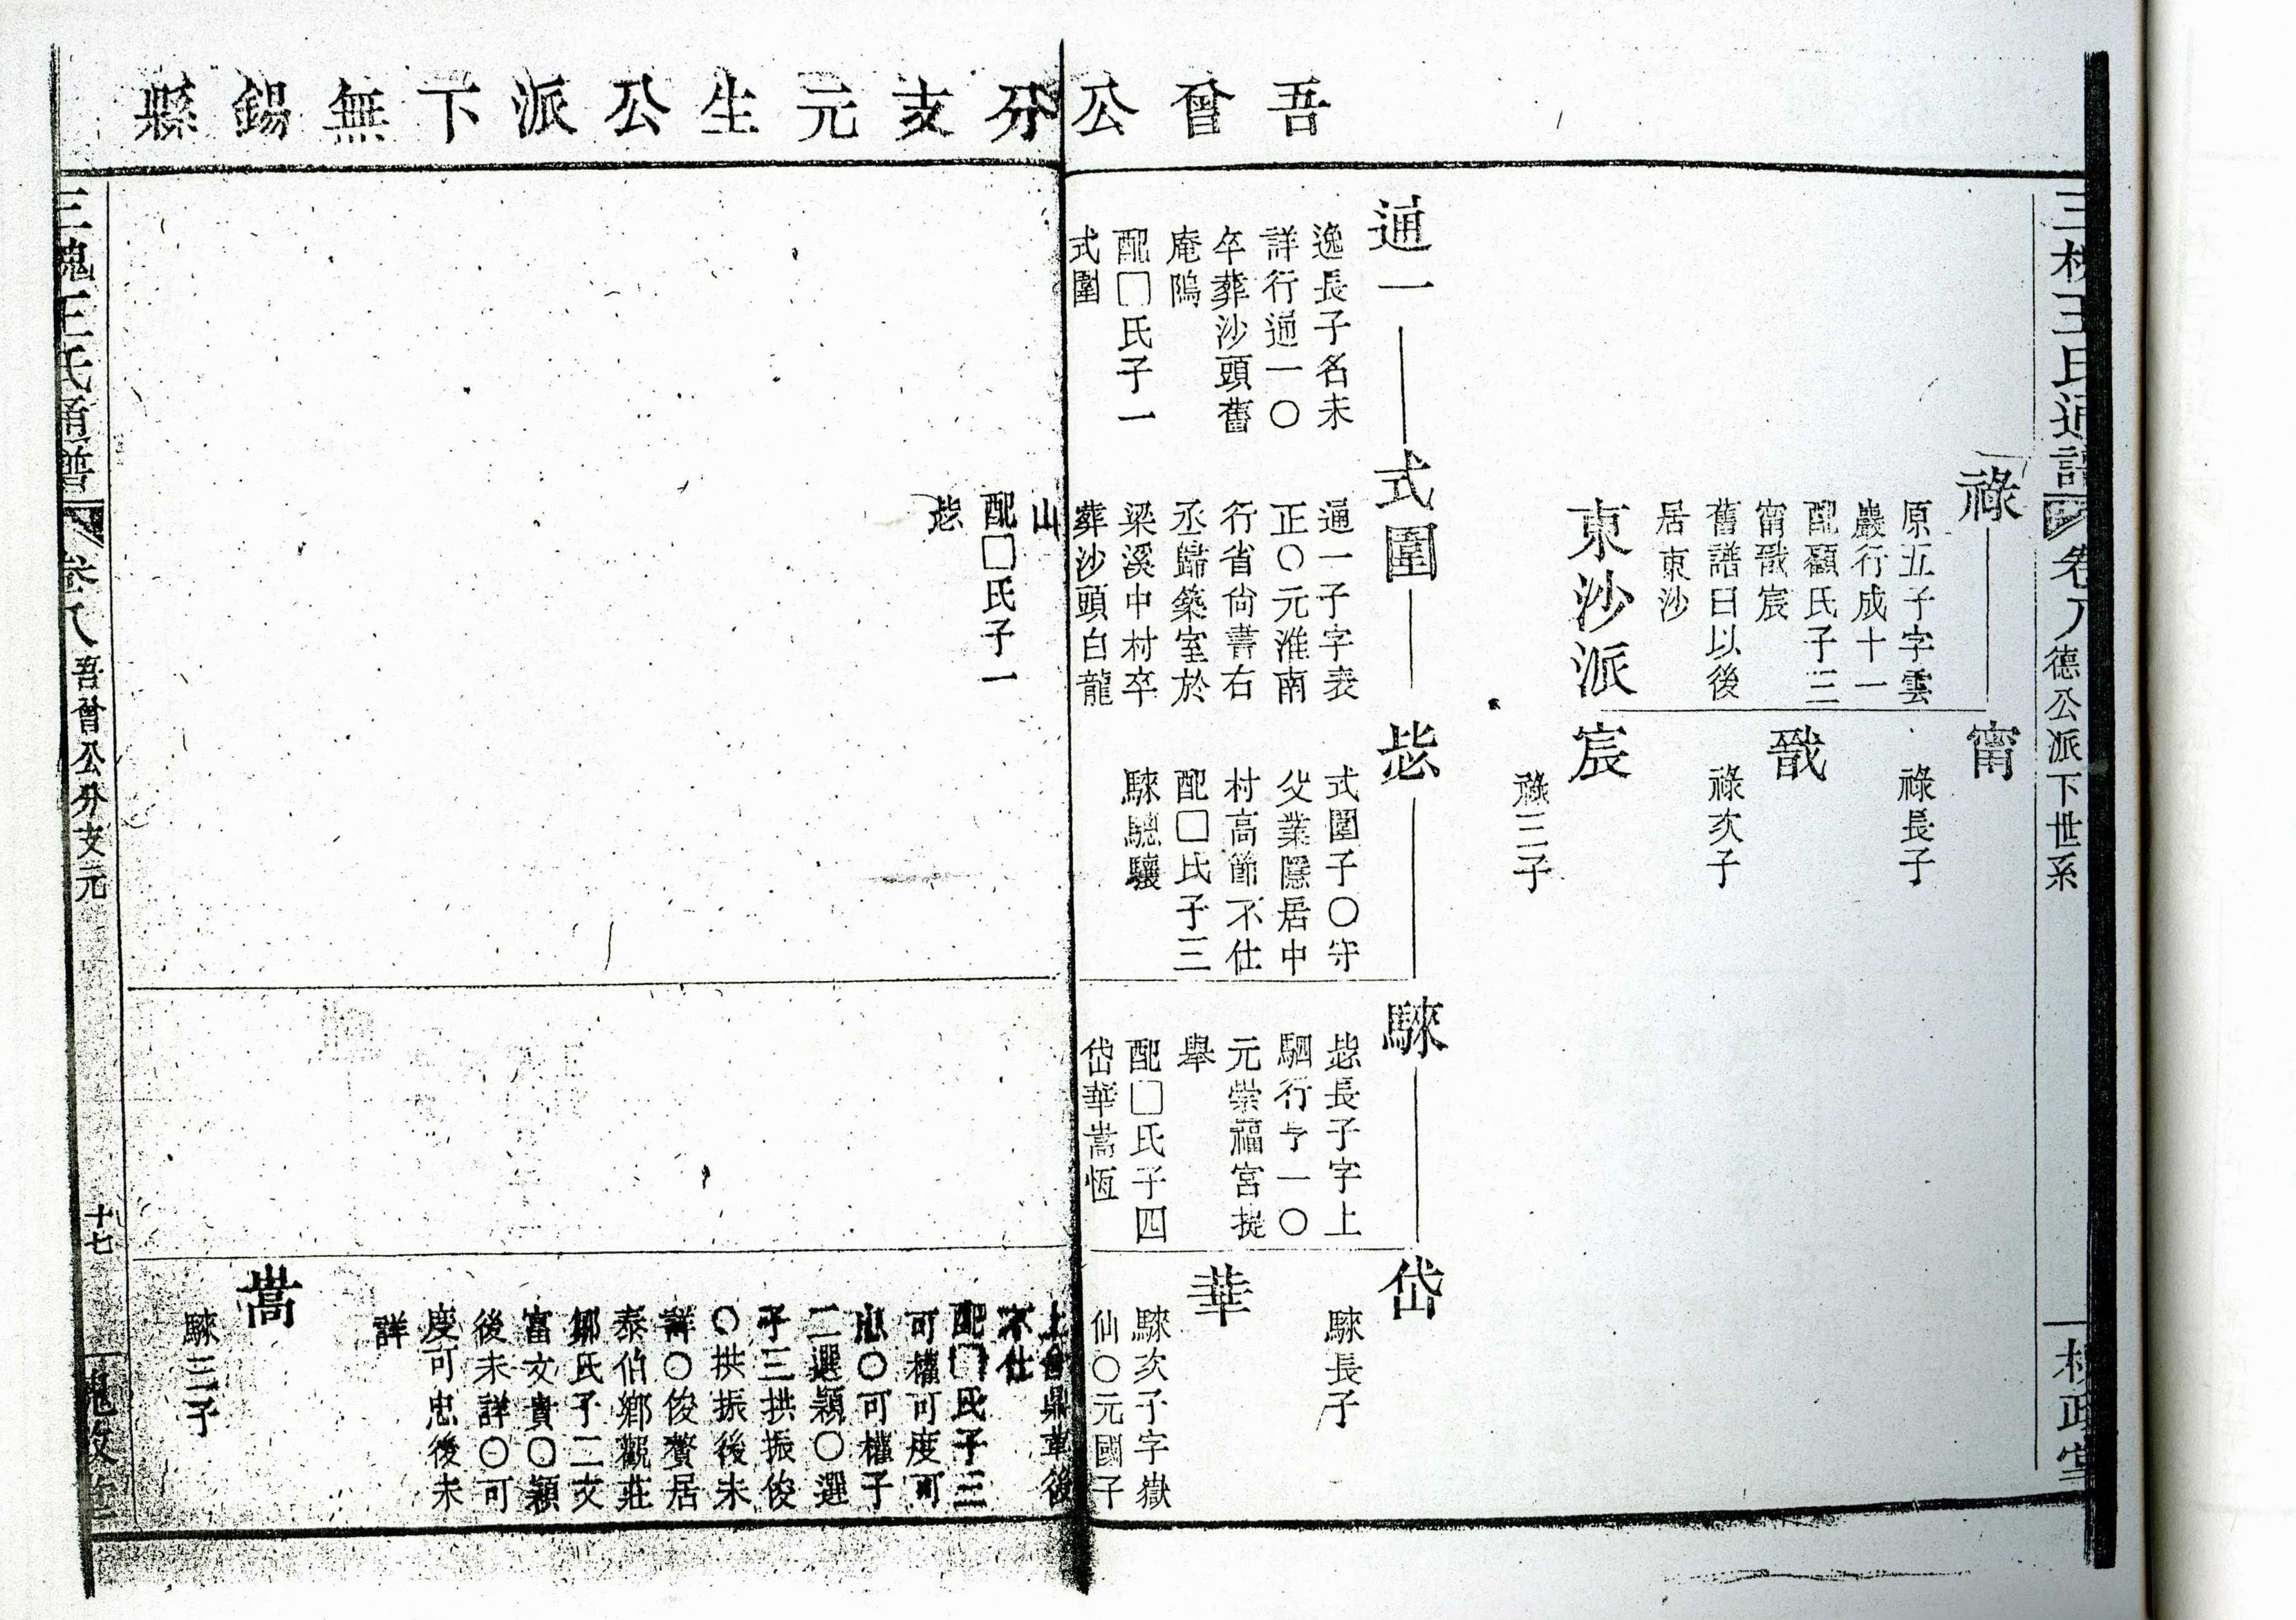 吾曾公分支元生公派下無錫縣
三槐王氏通譜
卷八
德公派下世系
槐政堂
祿
原五子字雲
巖行成十一
配顧氏子三
甯戩宸
舊譜曰以後
居東沙
東沙派
甯
祿長子
戩
祿次子
宸
祿三子
通一
逸長子名未
詳行通一〇
卒葬沙頭舊
庵隖
配□氏子一
式圍
式圍
通一子字表
正〇元淮南
行省尙書右
丞歸築室於
梁溪中村卒
葬沙頭白龍
山
配□氏子一
毖
毖
式圍子〇守
父業隱居中
村高節不仕
配□氏子三
騋驄驤
騋
毖長子字上
駟行亏一〇
元崇福宮提
舉
配□氏子四
岱華嵩恆
岱
騋長子
華
騋次子字嶽
仙〇元國子
上舍鼎革後
不仕
配□氏子三
可權可度可
忠〇可權子
二選穎〇選
子三拱振俊
〇拱振後未
詳〇俊贅居
泰伯鄉觀莊
鄒氏子二文
富文貴〇穎
後未詳〇可
度可忠後未
詳
嵩
騋三子
三槐王氏通譜
卷八
吾曾公分支元
十七
槐政堂